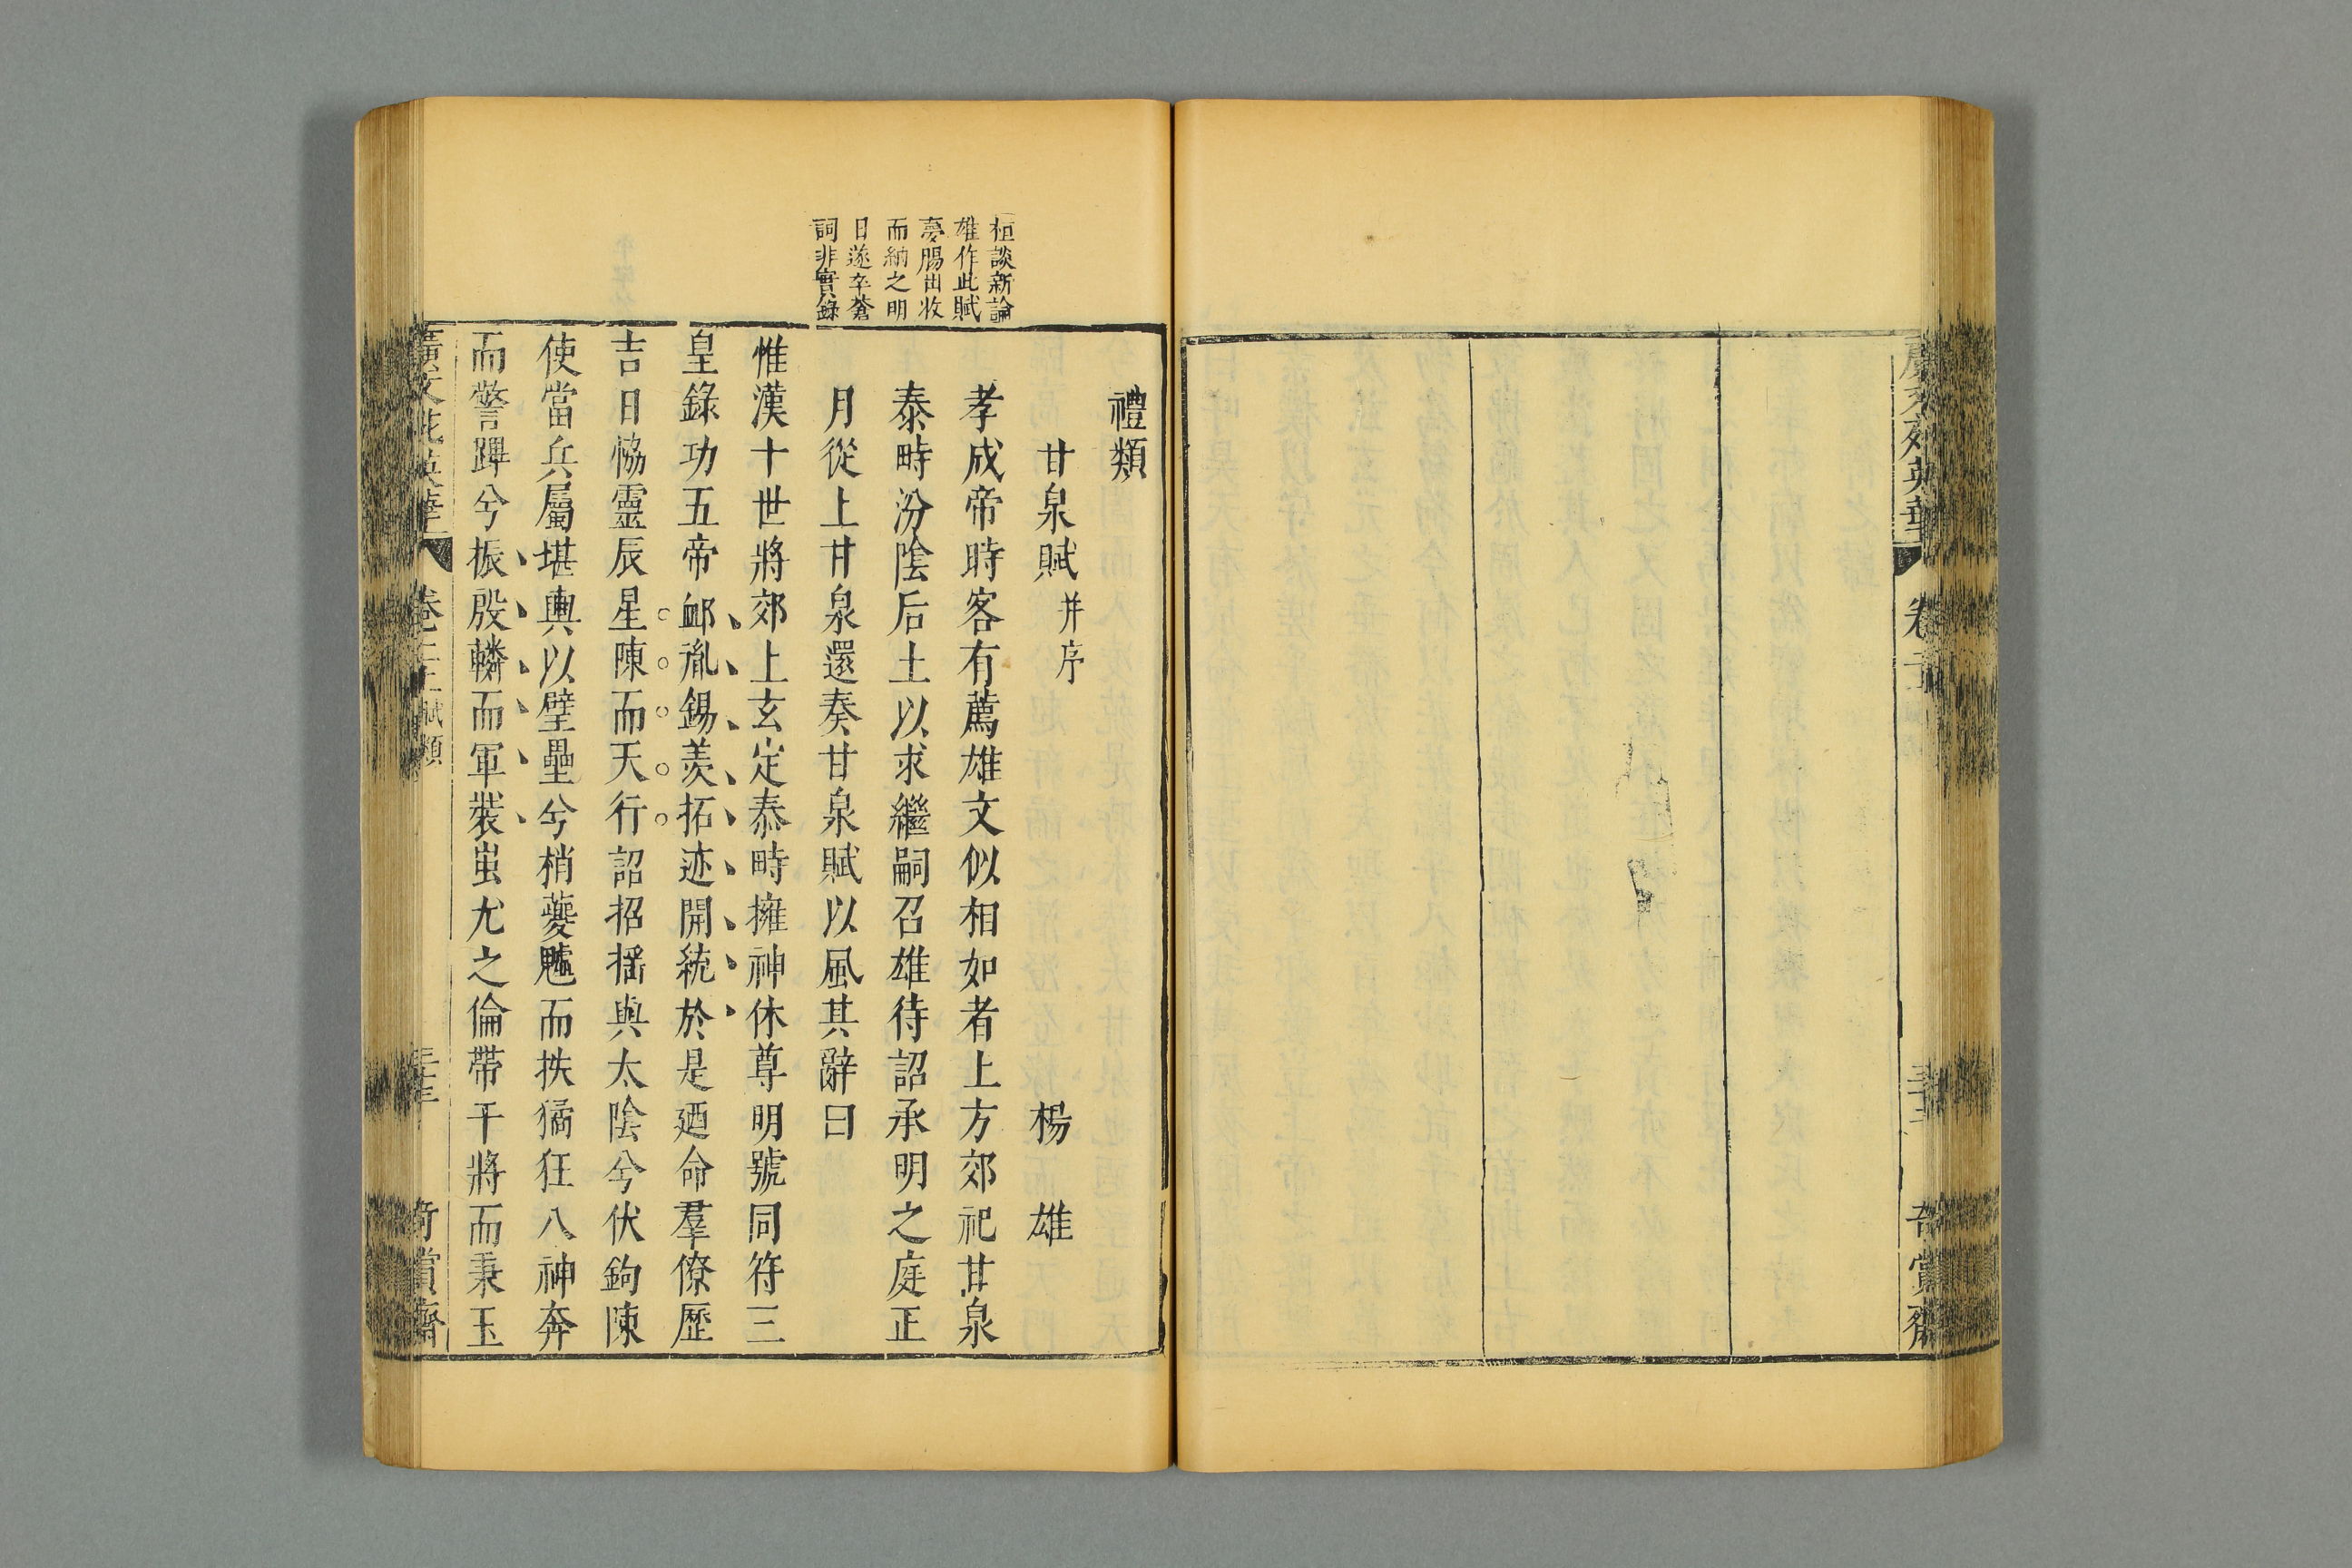 廣文苑英華
卷二
奇賞齋
桓談新論
雄作此賦
夢腸出收
而納之明
日遂卒蒼
詞非實錄
禮類
甘泉賦并序 楊雄
孝成帝時客有薦雄文似相如者上方郊祀甘泉
泰畤汾陰后土以求繼嗣召雄待詔承明之庭正
月從上甘泉還奏甘泉賦以風其辭曰
惟漢十世將郊上玄定泰畤擁神休尊明號同符三
皇錄功五帝卹胤錫羨拓迹開統於是廼命羣僚歷
吉日恊靈辰星陳而天行詔招搖與太陰兮伏鉤陳
使當兵屬堪輿以壁壘兮梢夔魖而抶獝狂八神奔
而警蹕兮振殷轔而軍裝蚩尤之倫帶干將而秉玉
廣文苑英華 卷二 賦類 奇賞齋